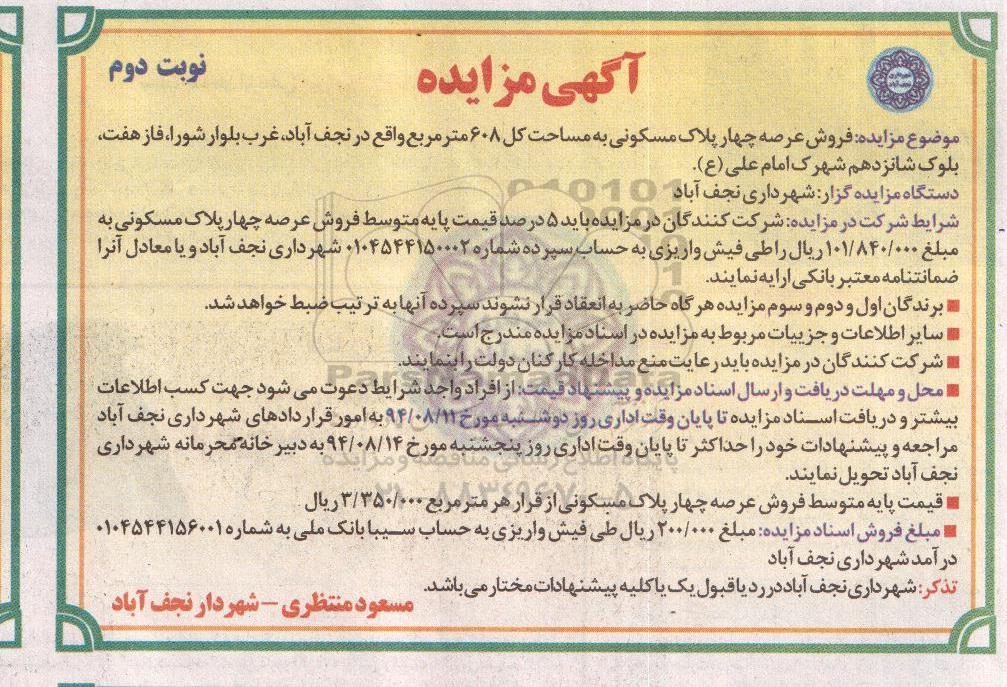 نوبت دوم
آگهی مزایده
موضوع مزایده: فروش عرصه چهار پلاک مسکونی به مساحت کل ۶۰۸ متر مربع واقع در نجف آباد، غرب بلوار شورا، فاز هفت،
بلوک شانزدهم شهرک امام علی (ع).
دستگاه مزایده گزار: شهرداری نجف آباد
شرایط شرکت در مزایده: شرکت کنندگان در مزایده باید ۵ درصد قیمت پایه متوسط فروش عرصه چهار پلاک مسکونی به
مبلغ ۱۰۱/۸۴۰/۰۰۰ ریال را طی فیش واریزی به حساب سپرده شماره ۰۱۰۴۵۴۴۱۵۰۰۰۲ شهرداری نجف آباد و یا معادل آنرا
ضمانتنامه معتبر بانکی ارایه نمایند.
■ برندگان اول و دوم و سوم مزایده هر گاه حاضر به انعقاد قرار نشوند سپرده آنها به ترتیب ضبط خواهد شد.
■ سایر اطلاعات و جزییات مربوط به مزایده در اسناد مزایده مندرج است.
■ شرکت کنندگان در مزایده باید رعایت منع مداخله کارکنان دولت را بنمایند.
■ محل و مهلت دریافت و ارسال اسناد مزایده و پیشنهاد قیمت: از افراد واجد شرایط دعوت می شود جهت کسب اطلاعات
بیشتر و دریافت اسناد مزایده تا پایان وقت اداری روز دوشنبه مورخ ۹۴/۰۸/۱۱ به امور قراردادهای شهرداری نجف آباد
مراجعه و پیشنهادات خود را حداکثر تا پایان وقت اداری روز پنجشنبه مورخ ۹۴/۰۸/۱۴ به دبیرخانه محرمانه شهرداری
نجف آباد تحویل نمایند.
■ قیمت پایه متوسط فروش عرصه چهار پلاک مسکونی از قرار هر متر مربع ۳/۳۵۰/۰۰۰ ریال
■ مبلغ فروش اسناد مزایده: مبلغ ۲۰۰/۰۰۰ ریال طی فیش واریزی به حساب سیبا بانک ملی به شماره ۰۱۰۴۵۴۴۱۵۶۰۰۱
درآمد شهرداری نجف آباد
تذکر: شهرداری نجف آباد در رد یا قبول یک یا کلیه پیشنهادات مختار می باشد.
مسعود منتظری - شهردار نجف آباد
ParsNamadData
پایگاه اطلاع رسانی مناقصه و مزایده
۰۲۱-۸۸۳۴۹۶۷۰-۵